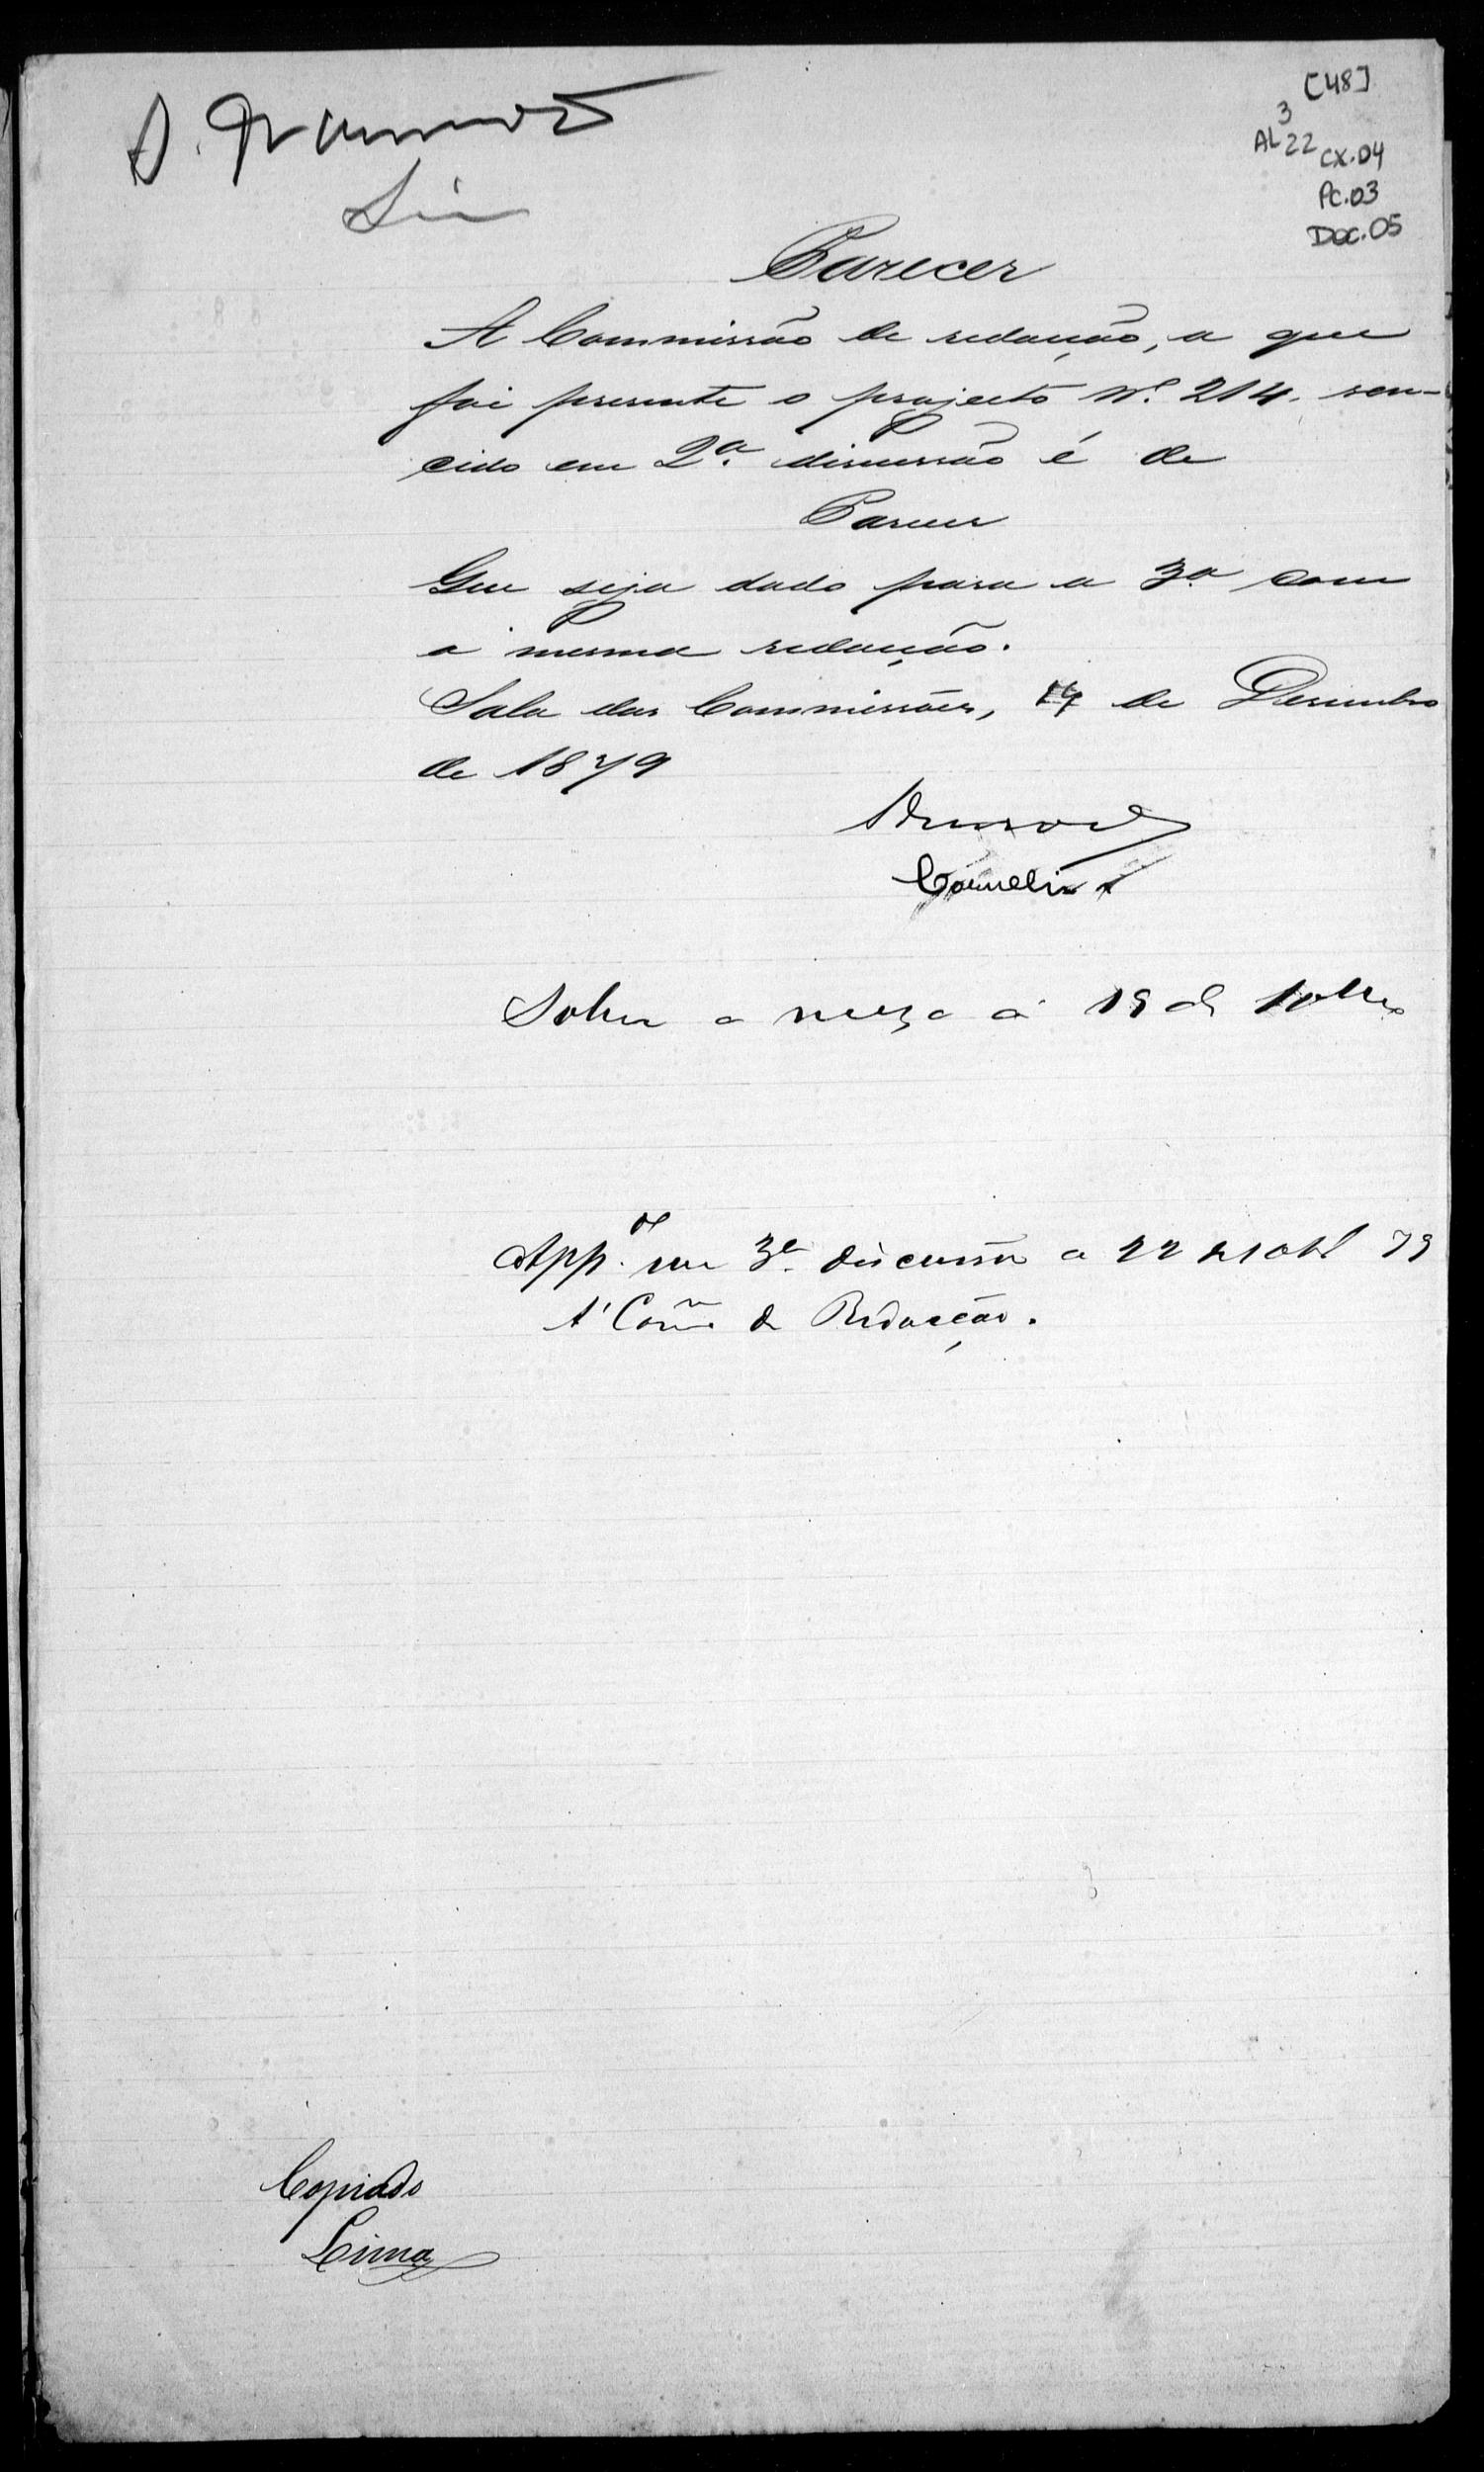 [48]
3
AL 22 CX.04
PC.03
Doc.05
Parecer
A Commissão de redacção, a que
foi presente o projecto Nº. 214. ven-
cido em 2ª. discussão é de
Parecer
Que seja dado para a 3ª com
a mesma redacção.
Sala das Commissões, de Dezembro
de 1879
Sobre a meza a 19 de 10bro
App.do em 3ª discussão a 22 de 10bro 79
A' Comm. de Redacção.
Copiado
Lima